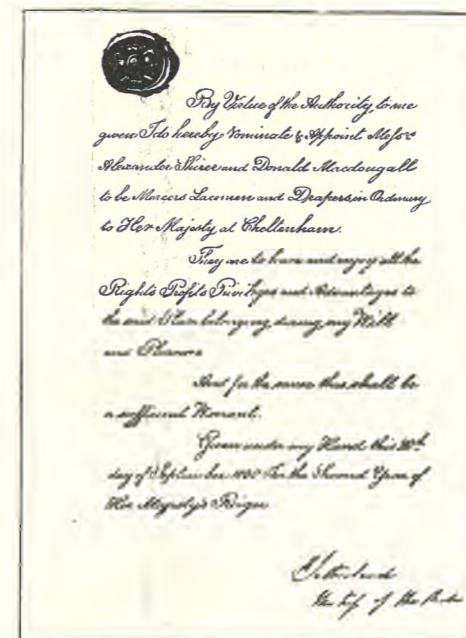 By Virtue of the Authority to me
given I do hereby Nominate & Appoint Messrs
Alexander Shirer and Donald Macdougall
to be Mercers Lacemen and Drapers in Ordinary
to Her Majesty at Cheltenham.
They are to have and enjoy all the
Rights Profits Privileges and Advantages to
the said Place belonging during my Will
and Pleasure
And for the same this shall be
a sufficient Warrant.
Given under my Hand this
day of September in the Second Year of
Her Majesty's Reign
of the